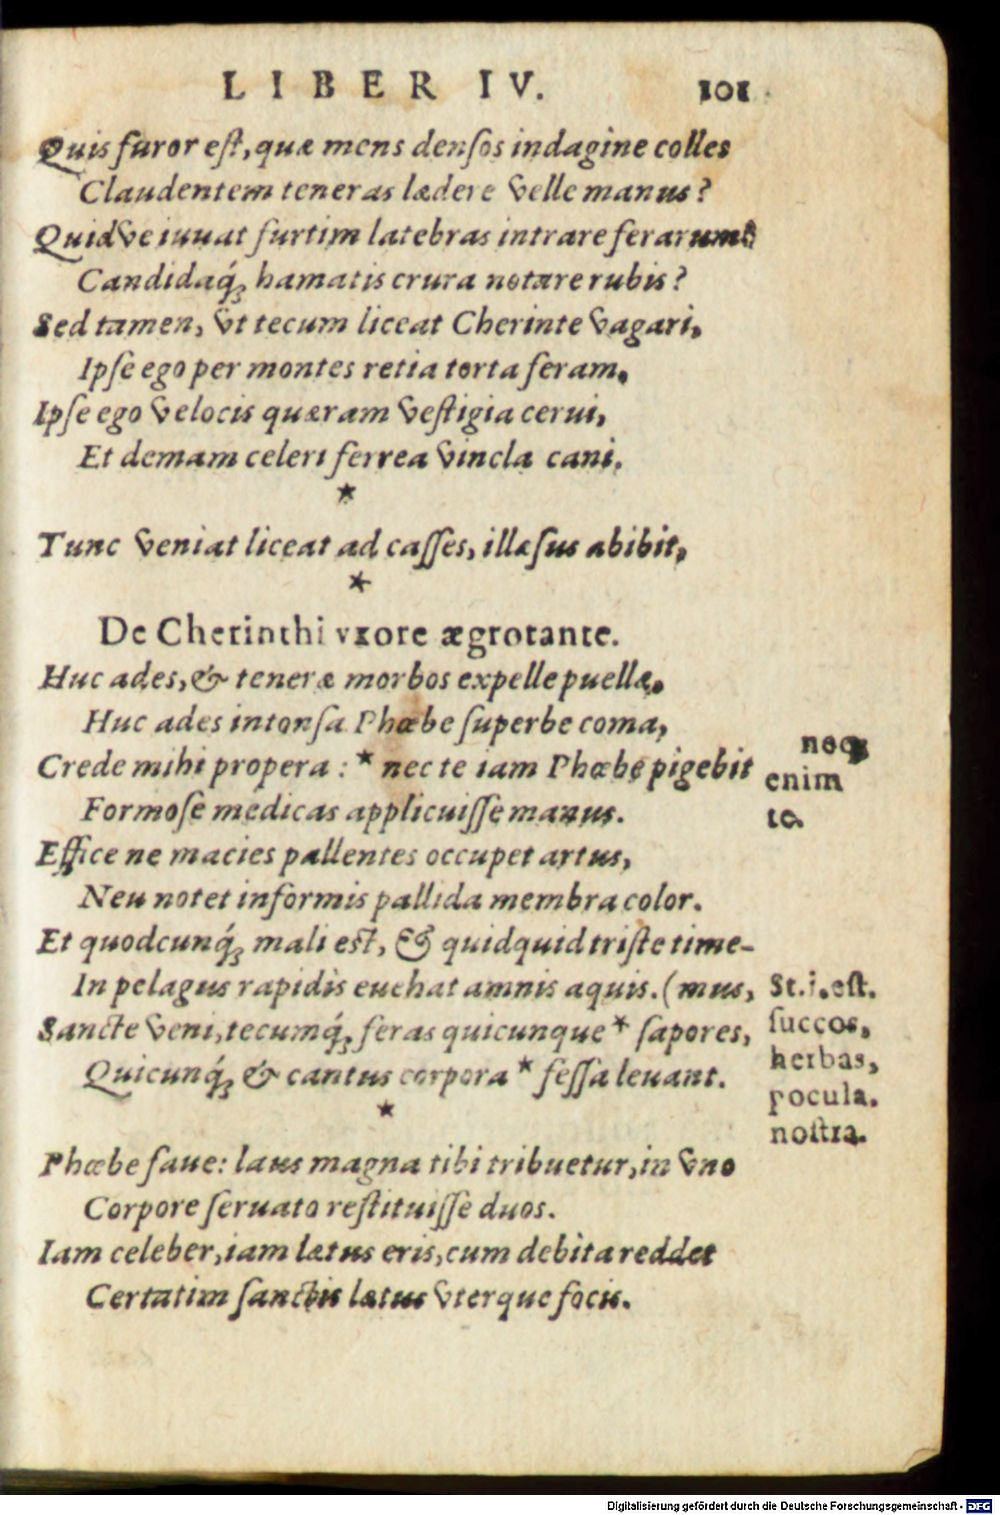 LIBER IV. 101
Quis furor est, quæ mens densos indagine colles
Claudentem teneras lædere velle manus?
Quidve iuuat furtim latebras intrare ferarum?
Candidaq́; hamatis crura notare rubis?
Sed tamen, vt tecum liceat Cherinte vagari,
Ipse ego per montes retia torta feram.
Ipse ego velocis quæram vestigia cerui,
Et demam celeri ferrea vincla cani.
*
Tunc veniat liceat ad casses, illæsus abibit,
*
De Cherinthi vxore ægrotante.
Huc ades, & teneræ morbos expelle puellæ.
Huc ades intonsa Phœbe superbe coma,
Crede mihi propera : * nec te iam Phœbe pigebit
Formose medicas applicuisse manus.
Effice ne macies pallentes occupet artus,
Neu notet informis pallida membra color.
Et quodcunq́; mali est, & quidquid triste time-
In pelagus rapidis euehat amnis aquis. (mus,
Sancte veni, tecumq́; feras quicunque * sapores,
Quicunq́; & cantus corpora * fessa leuant.
*
Phœbe saue: laus magna tibi tribuetur, in vno
Corpore seruato restituisse duos.
Iam celeber, iam lætus eris, cum debita reddet
Certatim sanctis lætus vterque focis.
neq;
enim
te.
St. i. est.
succos,
herbas,
pocula.
nostra.
Digitalisierung gefördert durch die Deutsche Forschungsgemeinschaft - DFG